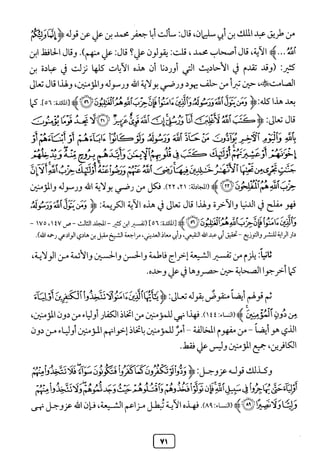 من طريق عبد الملك بن أبي سليمان، قال: سألت أبا جعفر محمد بن علي عن قوله ﴿إِنَّمَا وَلِيُّكُمُ
اللَّهُ ...﴾ الآية، قال أصحاب محمد، قلت: يقولون علي؟ قال: علي منهم). وقال الحافظ ابن
كثير: (وقد تقدم في الأحاديث التي أوردنا أن هذه الآيات كلها نزلت في عبادة بن
الصامت حين تبرأ من حلف يهود ورضي بولاية الله ورسوله والمؤمنين، ولهذا قال تعالى
بعد هذا كله: ﴿وَمَن يَتَوَلَّ اللَّهَ وَرَسُولَهُ وَالَّذِينَ آمَنُوا فَإِنَّ حِزْبَ اللَّهِ هُمُ الْغَالِبُونَ ﴿٥٦﴾﴾ [المائدة: ٥٦]. كما
قال تعالى: ﴿كَتَبَ اللَّهُ لَأَغْلِبَنَّ أَنَا وَرُسُلِي إِنَّ اللَّهَ قَوِيٌّ عَزِيزٌ ﴿٢١﴾ لَا تَجِدُ قَوْمًا يُؤْمِنُونَ
بِاللَّهِ وَالْيَوْمِ الْآخِرِ يُوَادُّونَ مَنْ حَادَّ اللَّهَ وَرَسُولَهُ وَلَوْ كَانُوا آبَاءَهُمْ أَوْ أَبْنَاءَهُمْ أَوْ
إِخْوَانَهُمْ أَوْ عَشِيرَتَهُمْ أُولَئِكَ كَتَبَ فِي قُلُوبِهِمُ الْإِيمَانَ وَأَيَّدَهُم بِرُوحٍ مِّنْهُ وَيُدْخِلُهُمْ
جَنَّاتٍ تَجْرِي مِن تَحْتِهَا الْأَنْهَارُ خَالِدِينَ فِيهَا رَضِيَ اللَّهُ عَنْهُمْ وَرَضُوا عَنْهُ أُولَئِكَ حِزْبُ اللَّهِ أَلَا إِنَّ
حِزْبَ اللَّهِ هُمُ الْمُفْلِحُونَ ﴿٢٢﴾﴾ (المجادلة: ٢١، ٢٢). فكل من رضي بولاية الله ورسوله والمؤمنين
فهو مفلح في الدنيا والآخرة ولهذا قال تعالى في هذه الآية الكريمة: ﴿وَمَن يَتَوَلَّ اللَّهَ وَرَسُولَهُ
وَالَّذِينَ آمَنُوا فَإِنَّ حِزْبَ اللَّهِ هُمُ الْغَالِبُونَ ﴿٥٦﴾﴾ [المائدة: ٥٦] (تفسير ابن كثير - المجلد الثالث - ص ١٤٧، ١٧٥ -
دار الراية للنشر والتوزيع - تحقيق أبي عبد الله الشيعي، وأبي معاذ العديني، مراجعة الشيخ مقبل بن هادي الوادعي رحمه الله).
ثانياً: يلزم من تفسير الشيعة إخراج فاطمة والحسن والحسين والأئمة من الولاية،
كما أخرجوا الصحابة حين حصروها في علي وحده.
ثم قولهم أيضاً منقوض بقوله تعالى: ﴿يَا أَيُّهَا الَّذِينَ آمَنُوا لَا تَتَّخِذُوا الْكَافِرِينَ أَوْلِيَاءَ
مِن دُونِ الْمُؤْمِنِينَ﴾ (النساء: ١٤٤). فهذا نهي للمؤمنين من اتخاذ الكفار أولياء من دون المؤمنين،
الذي هو أيضاً - من مفهوم المخالفة - أمر للمؤمنين باتخاذ إخوانهم المؤمنين أولياء من دون
الكافرين، جميع المؤمنين وليس علي فقط.
وكذلك قوله عزوجل: ﴿وَدُّوا لَوْ تَكْفُرُونَ كَمَا كَفَرُوا فَتَكُونُونَ سَوَاءً فَلَا تَتَّخِذُوا مِنْهُمْ
أَوْلِيَاءَ حَتَّى يُهَاجِرُوا فِي سَبِيلِ اللَّهِ فَإِن تَوَلَّوْا فَخُذُوهُمْ وَاقْتُلُوهُمْ حَيْثُ وَجَدتُّمُوهُمْ وَلَا تَتَّخِذُوا مِنْهُمْ
وَلِيًّا وَلَا نَصِيرًا ﴿٨٩﴾﴾ (النساء: ٨٩). فهذه الآية تُبطل مزاعم الشيعة، فإن الله عزوجل نهى
٧١